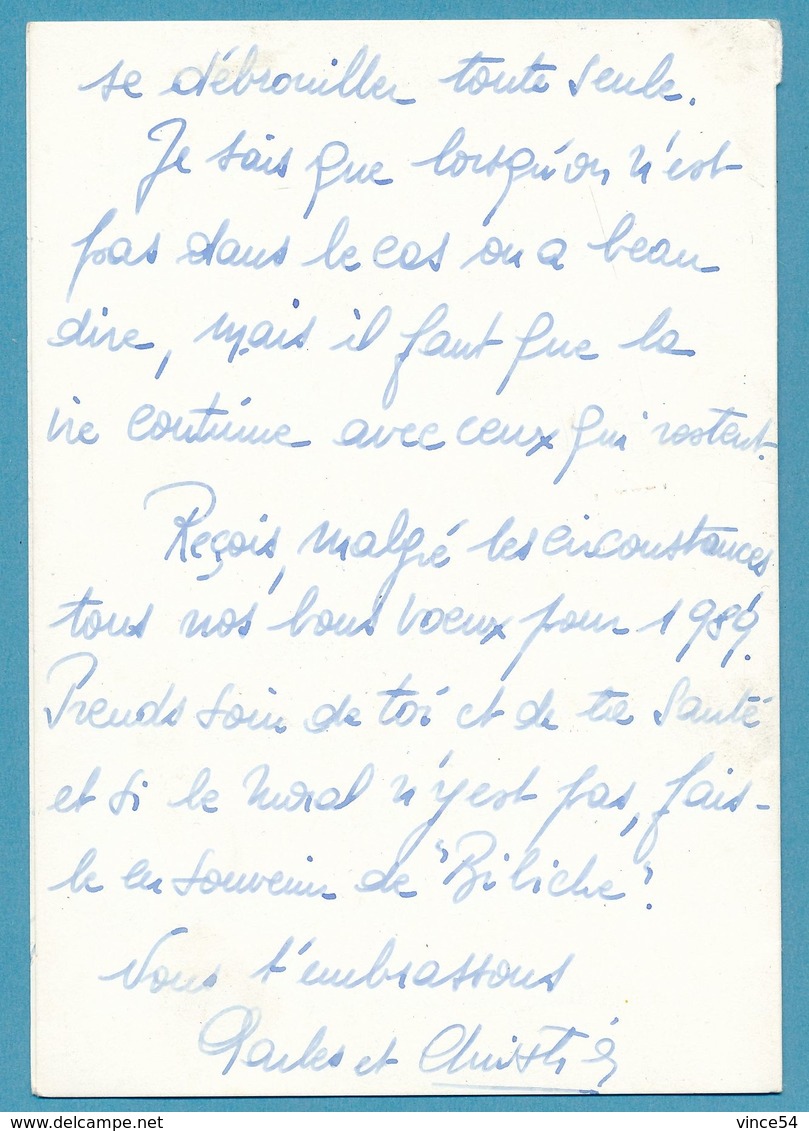 se débrouiller toute seule.
Je sais que lorsqu'on n'est
pas dans le cas on a beau
dire, mais il faut que la
vie continue avec ceux qui restent.
Reçois, malgré les circonstances
tous nos bons voeux pour 1989.
Prends soin de toi et de ta santé
et si le moral n'y est pas, fais-
le en souvenir de "Bibiche".
Nous t'embrassons
Charles et
vince54